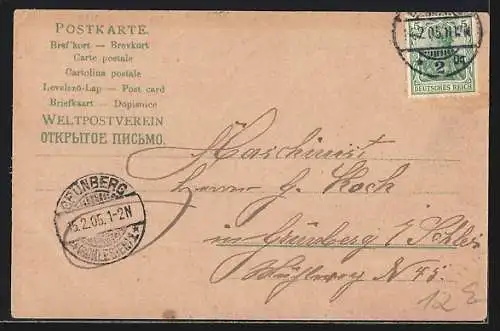 POSTKARTE.
Brefkort — Brevkort
Carte postale
Cartolina postale
Levelező-Lap — Post card
Briefkaart — Dopisnice
WELTPOSTVEREIN
ОТКРЫТОЕ ПИСЬМО.
5 5
DEUTSCHES REICH
2.05.11-12V
2
GRÜNBERG
15.2.05.1-2N
* (SCHLESIEN) *
Maschinist
Herrn G. Koch
in Grünberg i/ Schles
N 45
12